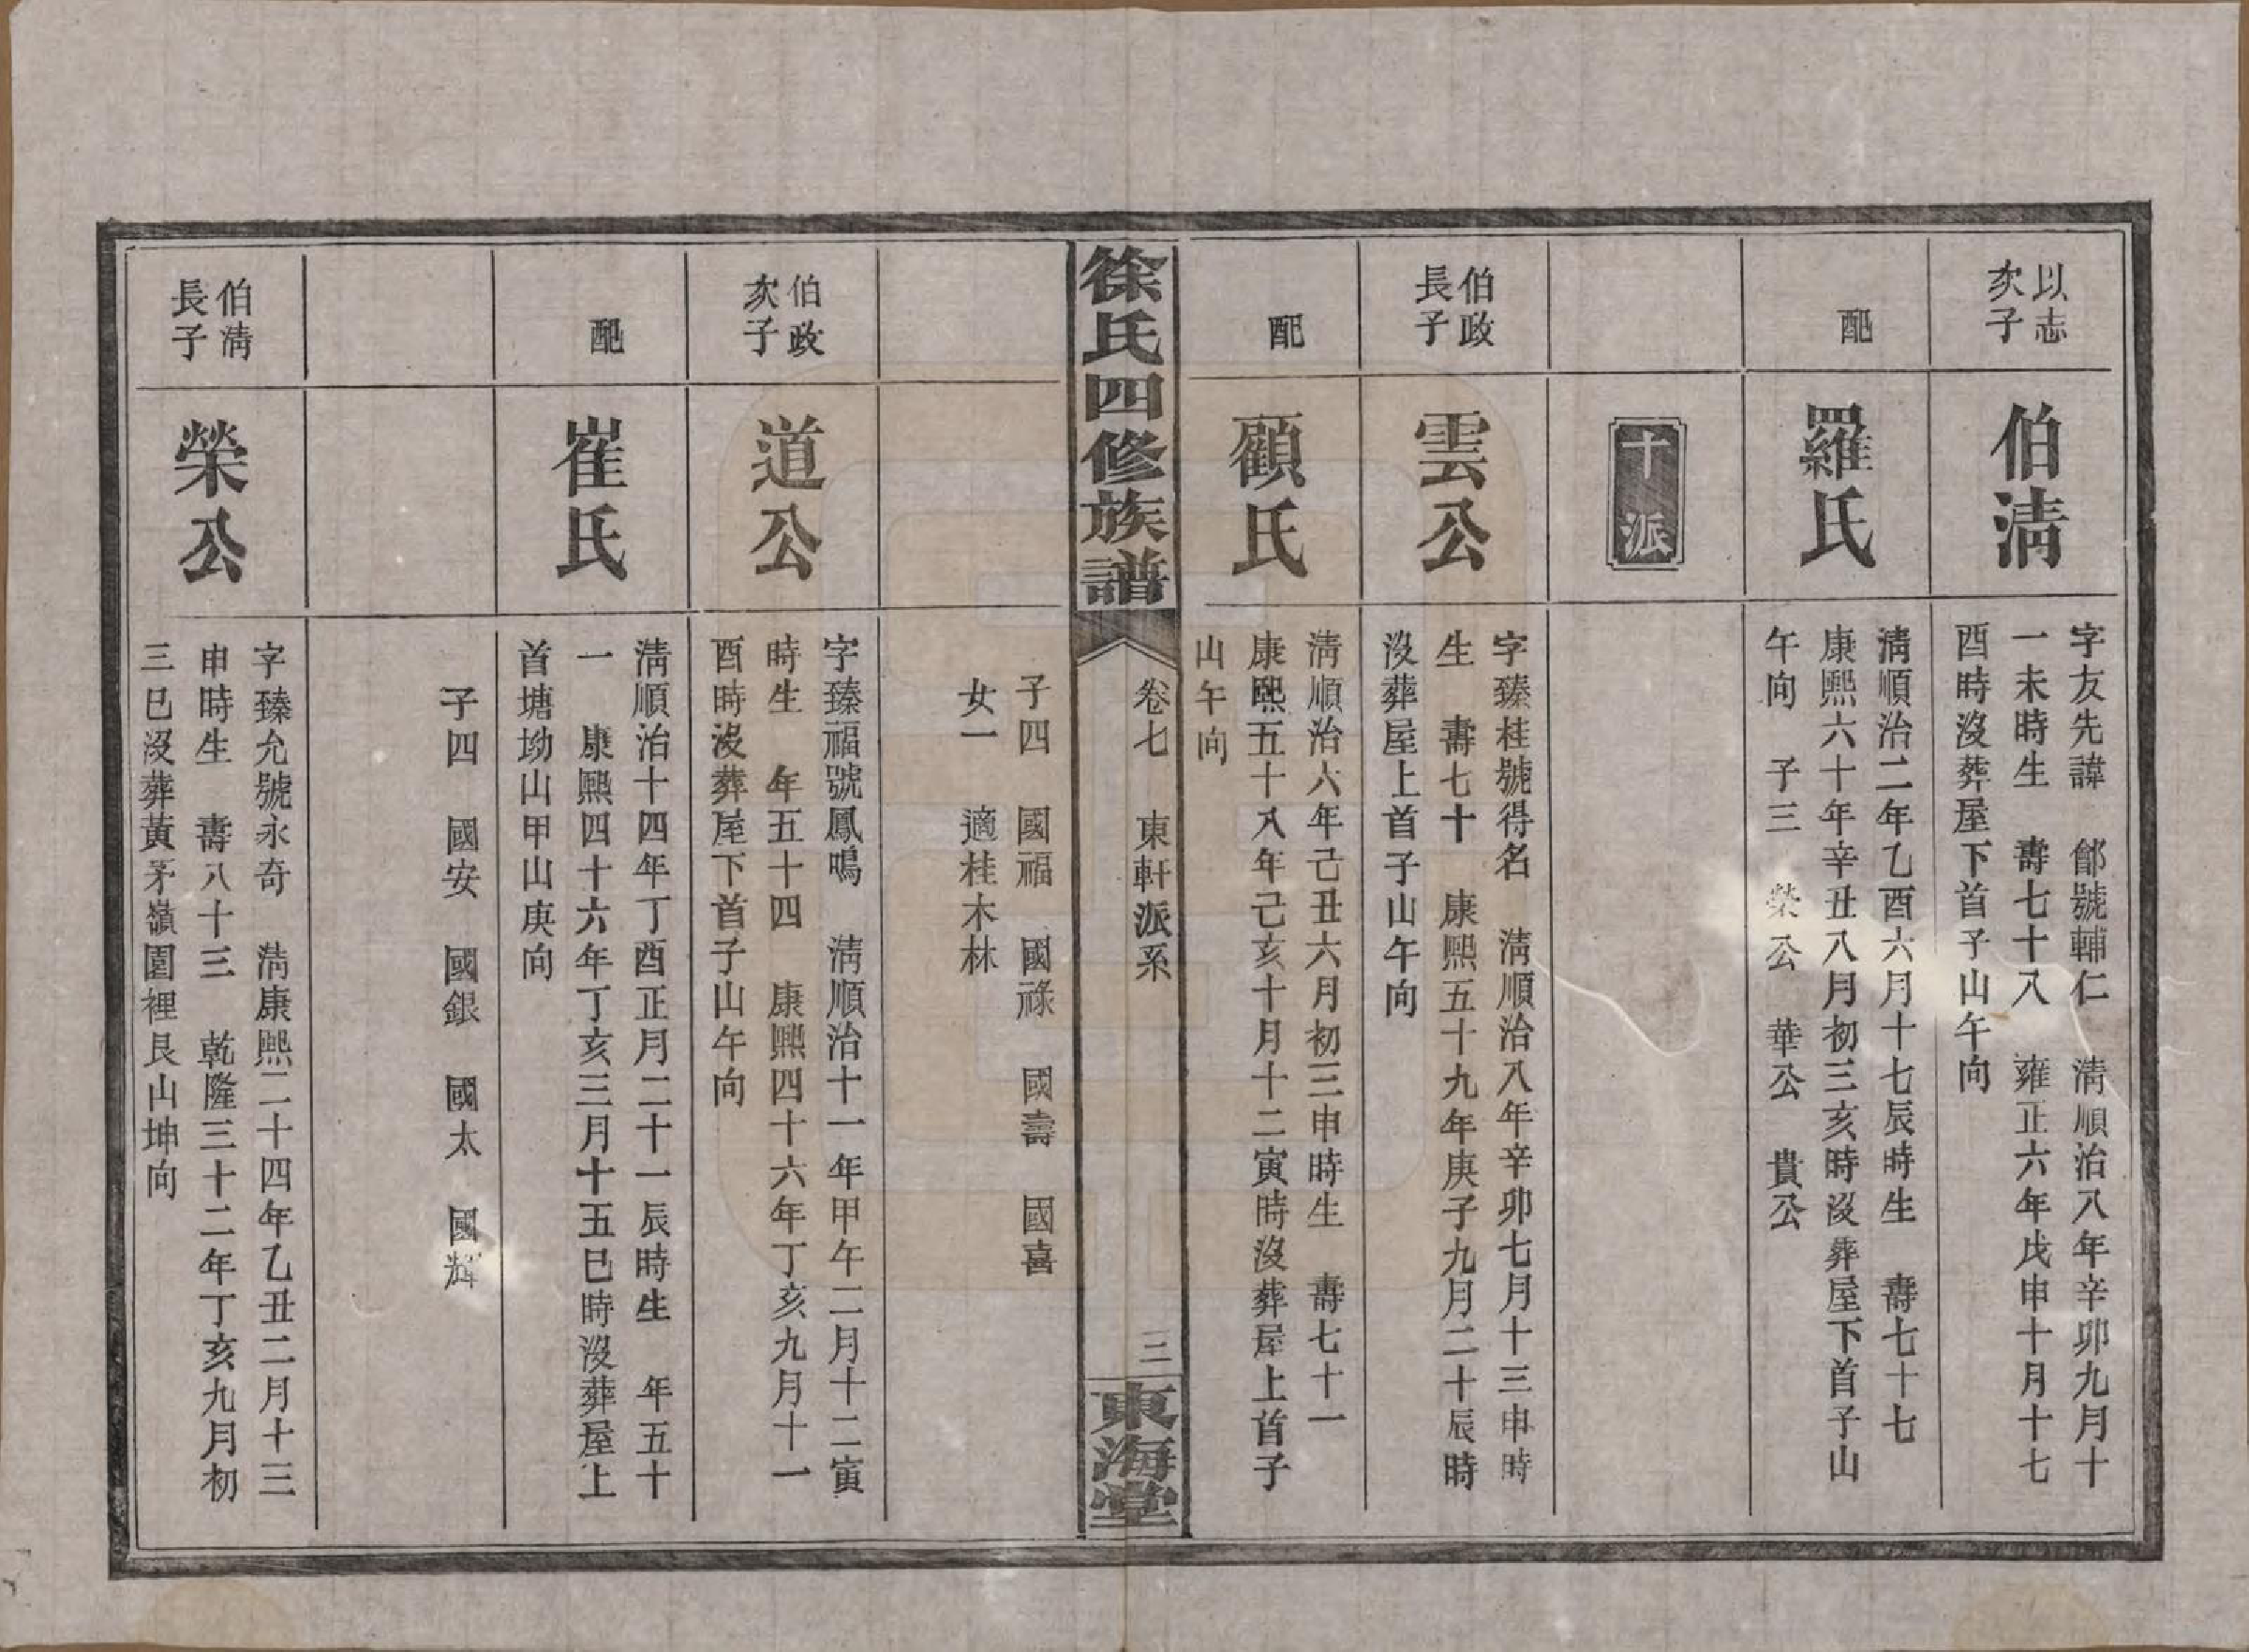 以志
次子
伯淸
字友先諱　鄮號輔仁　淸順治八年辛卯九月十
一未時生　壽七十八　雍正六年戊申十月十七
酉時沒葬屋下首子山午向
配
羅氏
淸順治二年乙酉六月十七辰時生　壽七十七
康熙六十年辛丑八月初三亥時沒葬屋下首子山
午向　子三　榮公　華公　貴公
十派
伯政
長子
雲公
字臻桂號得名　淸順治八年辛卯七月十三申時
生　壽七十　康熙五十九年庚子九月二十辰時
沒葬屋上首子山午向
配
顧氏
淸順治六年己丑六月初三申時生　壽七十一
康熙五十八年己亥十月十二寅時沒葬屋上首子
山午向
徐氏四修族譜
卷七　東軒派系
三
東海堂
子四　國福　國祿　國壽　國喜
女一　適桂木林
伯政
次子
道公
字臻福號鳳鳴　淸順治十一年甲午二月十二寅
時生　年五十四　康熙四十六年丁亥九月十一
酉時沒葬屋下首子山午向
配
崔氏
淸順治十四年丁酉正月二十一辰時生　年五十
一　康熙四十六年丁亥三月十五巳時沒葬屋上
首塘坳山甲山庚向
子四　國安　國銀　國太　國輝
伯淸
長子
榮公
字臻允號永奇　淸康熙二十四年乙丑二月十三
申時生　壽八十三　乾隆三十二年丁亥九月初
三巳沒葬黃茅嶺園裡艮山坤向